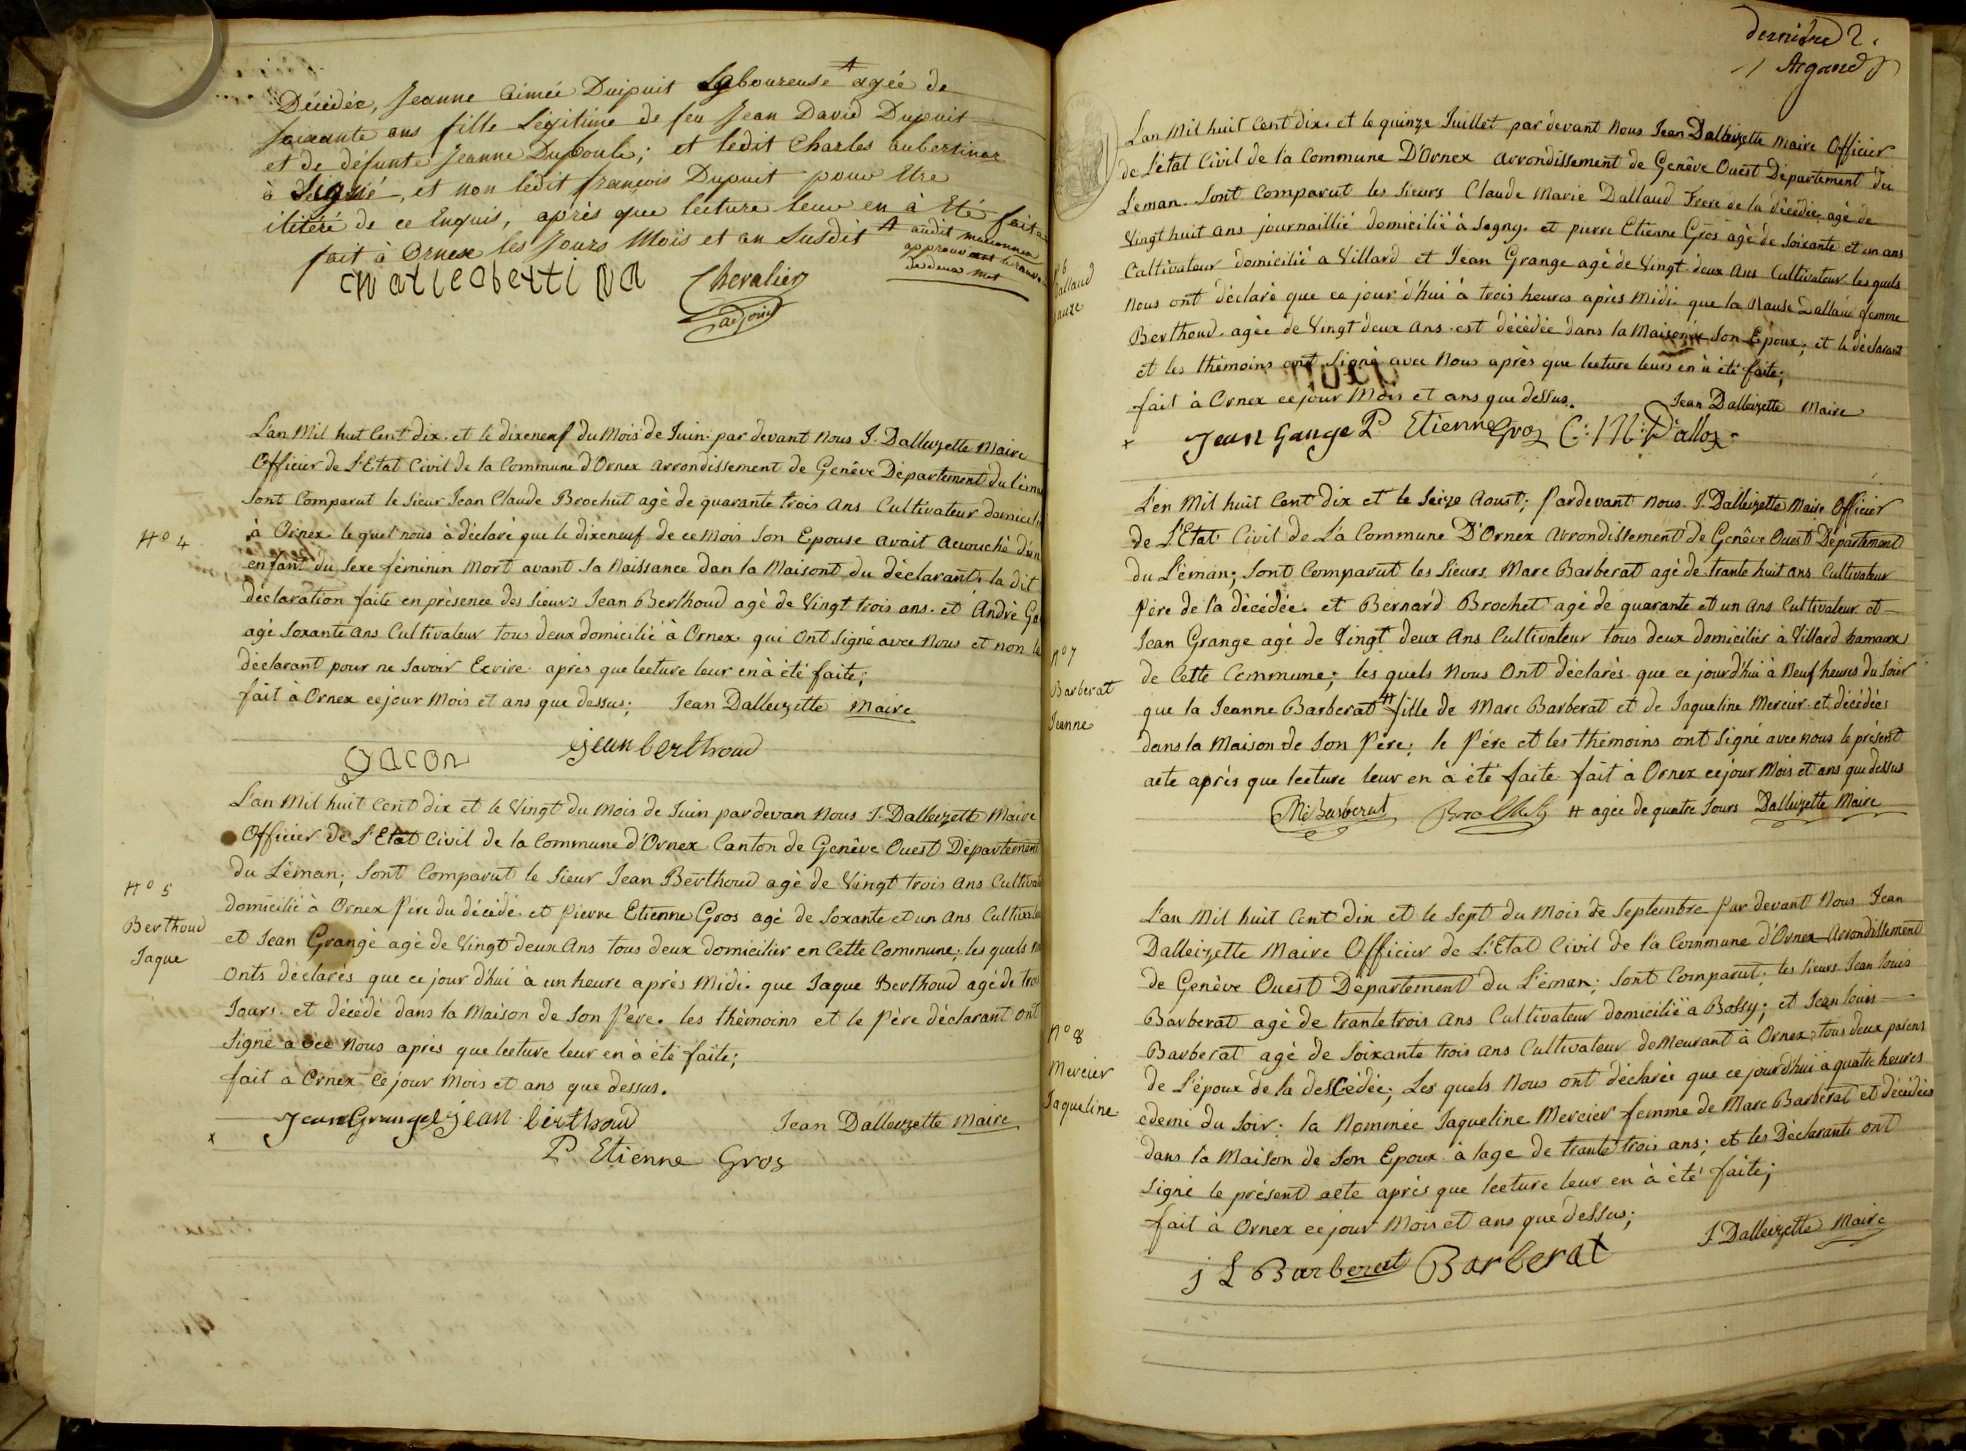 Décédée, Jeanne Aimée Dupuit Laboureuse agée de
soixante ans fille Légitime de feu Jean David Dupuit
et de défunte Jeanne Duboule; et ledit Charles aubertinaz
à Signé, et non ledit françois Dupuit pour Etre
ilitéré de ce Enquis, après que lecture leur en à Eté faite
fait à Ornex les Jours Mois et an Susdit
audit maconnex
approuvant
de deux mot
Chevalier
adjoint
L'an Mil huit Cent dix. et le dixeneuf du Mois de Juin. par devant Nous J. Dalleizette Maire
Officier de L'Etat Civil de la Commune d'Ornex arrondissement de Genêve Département du Lém
Sont Comparut le Sieur Jean Claude Brochut agè de quarante trois Ans Cultivateur domicil
N° 4
à Ornex. le quel nous à dèclarè que le dixeneuf de ce Mois Son Epouse avait acouchè d'un
enfant du Sexe féminin Mort avant Sa Naissance dan la Maisont du dèclarant. la dit
dèclaration faite en prèsence des Sieurs Jean Berthoud agè de Vingt trois ans. et Andrè Ga
agè Soxante Ans Cultivateur tous deux domicilié à Ornex. qui Ont Signé avec Nous et non le
dèclarant pour ne Savoir Ecrire. après que lecture leur en à été faite;
fait à Ornex cejour Mois et ans que dessus; Jean Dalleizette Maire
Gacon
jean berthoud
L'an Mil huit Cent dix et le Vingt du Mois de Juin pardevan Nous J. Dalleizette Maire
Officier de L'Etat Civil de la Commune d'Ornex Canton de Genêve Ouest Département
du Léman; Sont Comparut le Sieur Jean Berthoud agè de Vingt trois Ans Cultivat
N° 5
Berthoud
Jaque
domicilié à Ornex Père du décédé. et Pierre Etienne Gros agé de Soxante et un Ans Cultivate
et Jean Grangé agè de Vingt deux Ans tous deux domicilier en Cette Commune; les quels n
Onts dèclarès que ce jour d'hui à un heure après Midi. que Jaque Berthoud agé de trois
Jours. et décédé dans la Maison de Son Père. les thèmoins et le Père dèclarant Ont
Signé avec Nous après que lecture leur en à été faite;
fait a Ornex Ce jour Mois et ans que dessus.
Jean Grange jean berthoud
Jean Dalleizette Maire
P Etienne Gros
dernière 2.
Argand
L'an Mil huit Cent dix. et le quinze Juillet par devant Nous Jean Dalleizette Maire Officier
de l'état Civil de la Commune D'Ornex arrondissement de Genêve Ouest Département du
Léman. Sont Comparut les Sieurs Claude Marie Dallaud Frere de la décédée agé de
Vingt huit ans journaillié domicilié à Segny. et pierre Etienne Gros agé de Soixante et un ans
Cultivateur domicilié a Villard et Jean Grange agè de Vingt deux Ans Cultivateur les quels
Nous ont dèclarè que ce jour d'hui à trois heures après Midi que la Nause Dallaud femme
Berthoud. agée de Vingt deux Ans. est décédée dans la Maison de Son Epoux, et le dèclarant
et les thèmoins ont Signé avec Nous après que lecture leurs en à été faite;
fait à Ornex cejour Mois et ans que dessus. Jean Dalleizette Maire
Jean Gange P Etienne Gros C: M: Dalloz
L'en Mil huit Cent dix et le Seize Aoust; Pardevant Nous J. Dalleizette Maire Officier
de L'Etat Civil de La Commune D'Ornex arrondissement de Genêve Ouest Département
du Léman; Sont Comparut les Sieurs Marc Barberat agè de trante huit ans Cultivateur
Père de la décédée. et Bernard Brochet agé de quarante et un ans Cultivateur et
Jean Grange agé de Vingt deux Ans Cultivateur tous deux domicilier à Villard hamaux
N° 7
Barberat
Jeanne
de Cette Commune; les quels Nous Ont dèclarès que ce jourd'hui à Neuf heures du Soir
que la Jeanne Barberat # fille de Marc Barberat et de Jaqueline Mercier. et décédée
dans la Maison de Son Père; le Père et les thèmoins ont Signé avec nous le présent
acte après que lecture leur en à été faite. fait à Ornex cejour Mois et ans que dessus
# agée de quatre Jours Dalleizette Maire
Mc Barberat
L'an Mil huit Cent dix et le Sept du Mois de Septembre Par devant Nous Jean
Dalleizette Maire Officier de L'Etat Civil de la Commune d'Ornex Arrondissement
de Genêve Ouest Département du Léman; Sont Comparut; les Sieurs Jean louis
Barberat agé de trante trois Ans Cultivateur domicilié a Bossy; et Jean louis
N° 8
Mercier
Jaqueline
Barberat agé de Soixante trois Ans Cultivateur demeurant à Ornex; tous deux parens
de L'époux de la desCédée; Les quels Nous ont déclarés que ce jourd'hui a quatre heures
edemi du Soir; la Nommée Jaqueline Mercier femme de Marc Barberat et décédée
dans la Maison de Son Epoux à lage de trante trois ans; et les Déclarants ont
Signé le présent acte après que lecture leur en à été faite;
fait à Ornex ce jour Mois et ans que dessus; J. Dalleizette Maire
j L Barberat Barberat